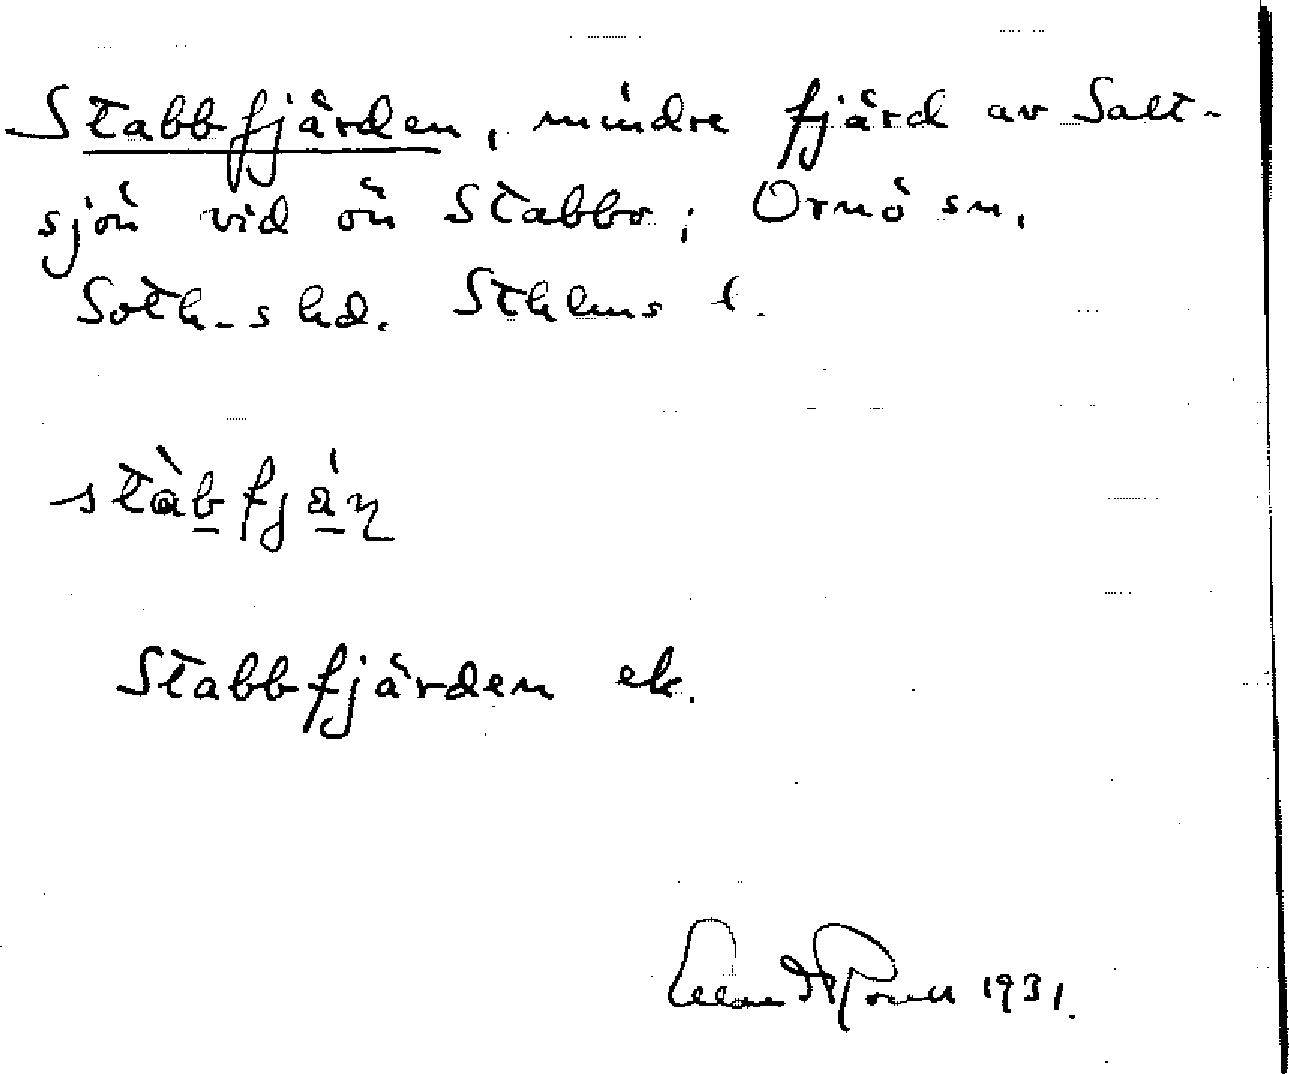 Stabbfjärden, mindre fjärd av Salt-
sjön vid ön Stabbo; Ornö sn,
Soth-s hd. Sthlms l.
stàb̲fjá̲ṇ
Stabbfjärden ek.
1931.